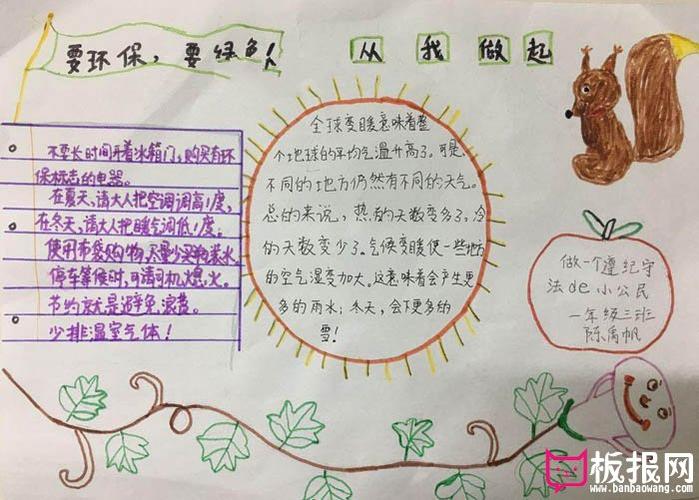 要环保，要绿色！
从我做起
不要长时间开着冰箱门，购买有环
保标志的电器。
在夏天，请大人把空调调高1度，
在冬天，请大人把暖气调低1度。
使用布袋购物，尽量少买瓶装水，
停车等候时，可请司机熄火。
节约就是避免浪费。
少排温室气体！
全球变暖意味着整
个地球的平均气温升高了。可是，
不同的地方仍然有不同的天气。
总的来说，热的天数变多了，冷
的天数变少了。气候变暖使一些地方
的空气湿度加大。这意味着会产生更
多的雨水；冬天，会下更多的
雪！
做一个遵纪守
法de小公民
一年级三班
陈禹帆
板报网
www.banbaowang.com